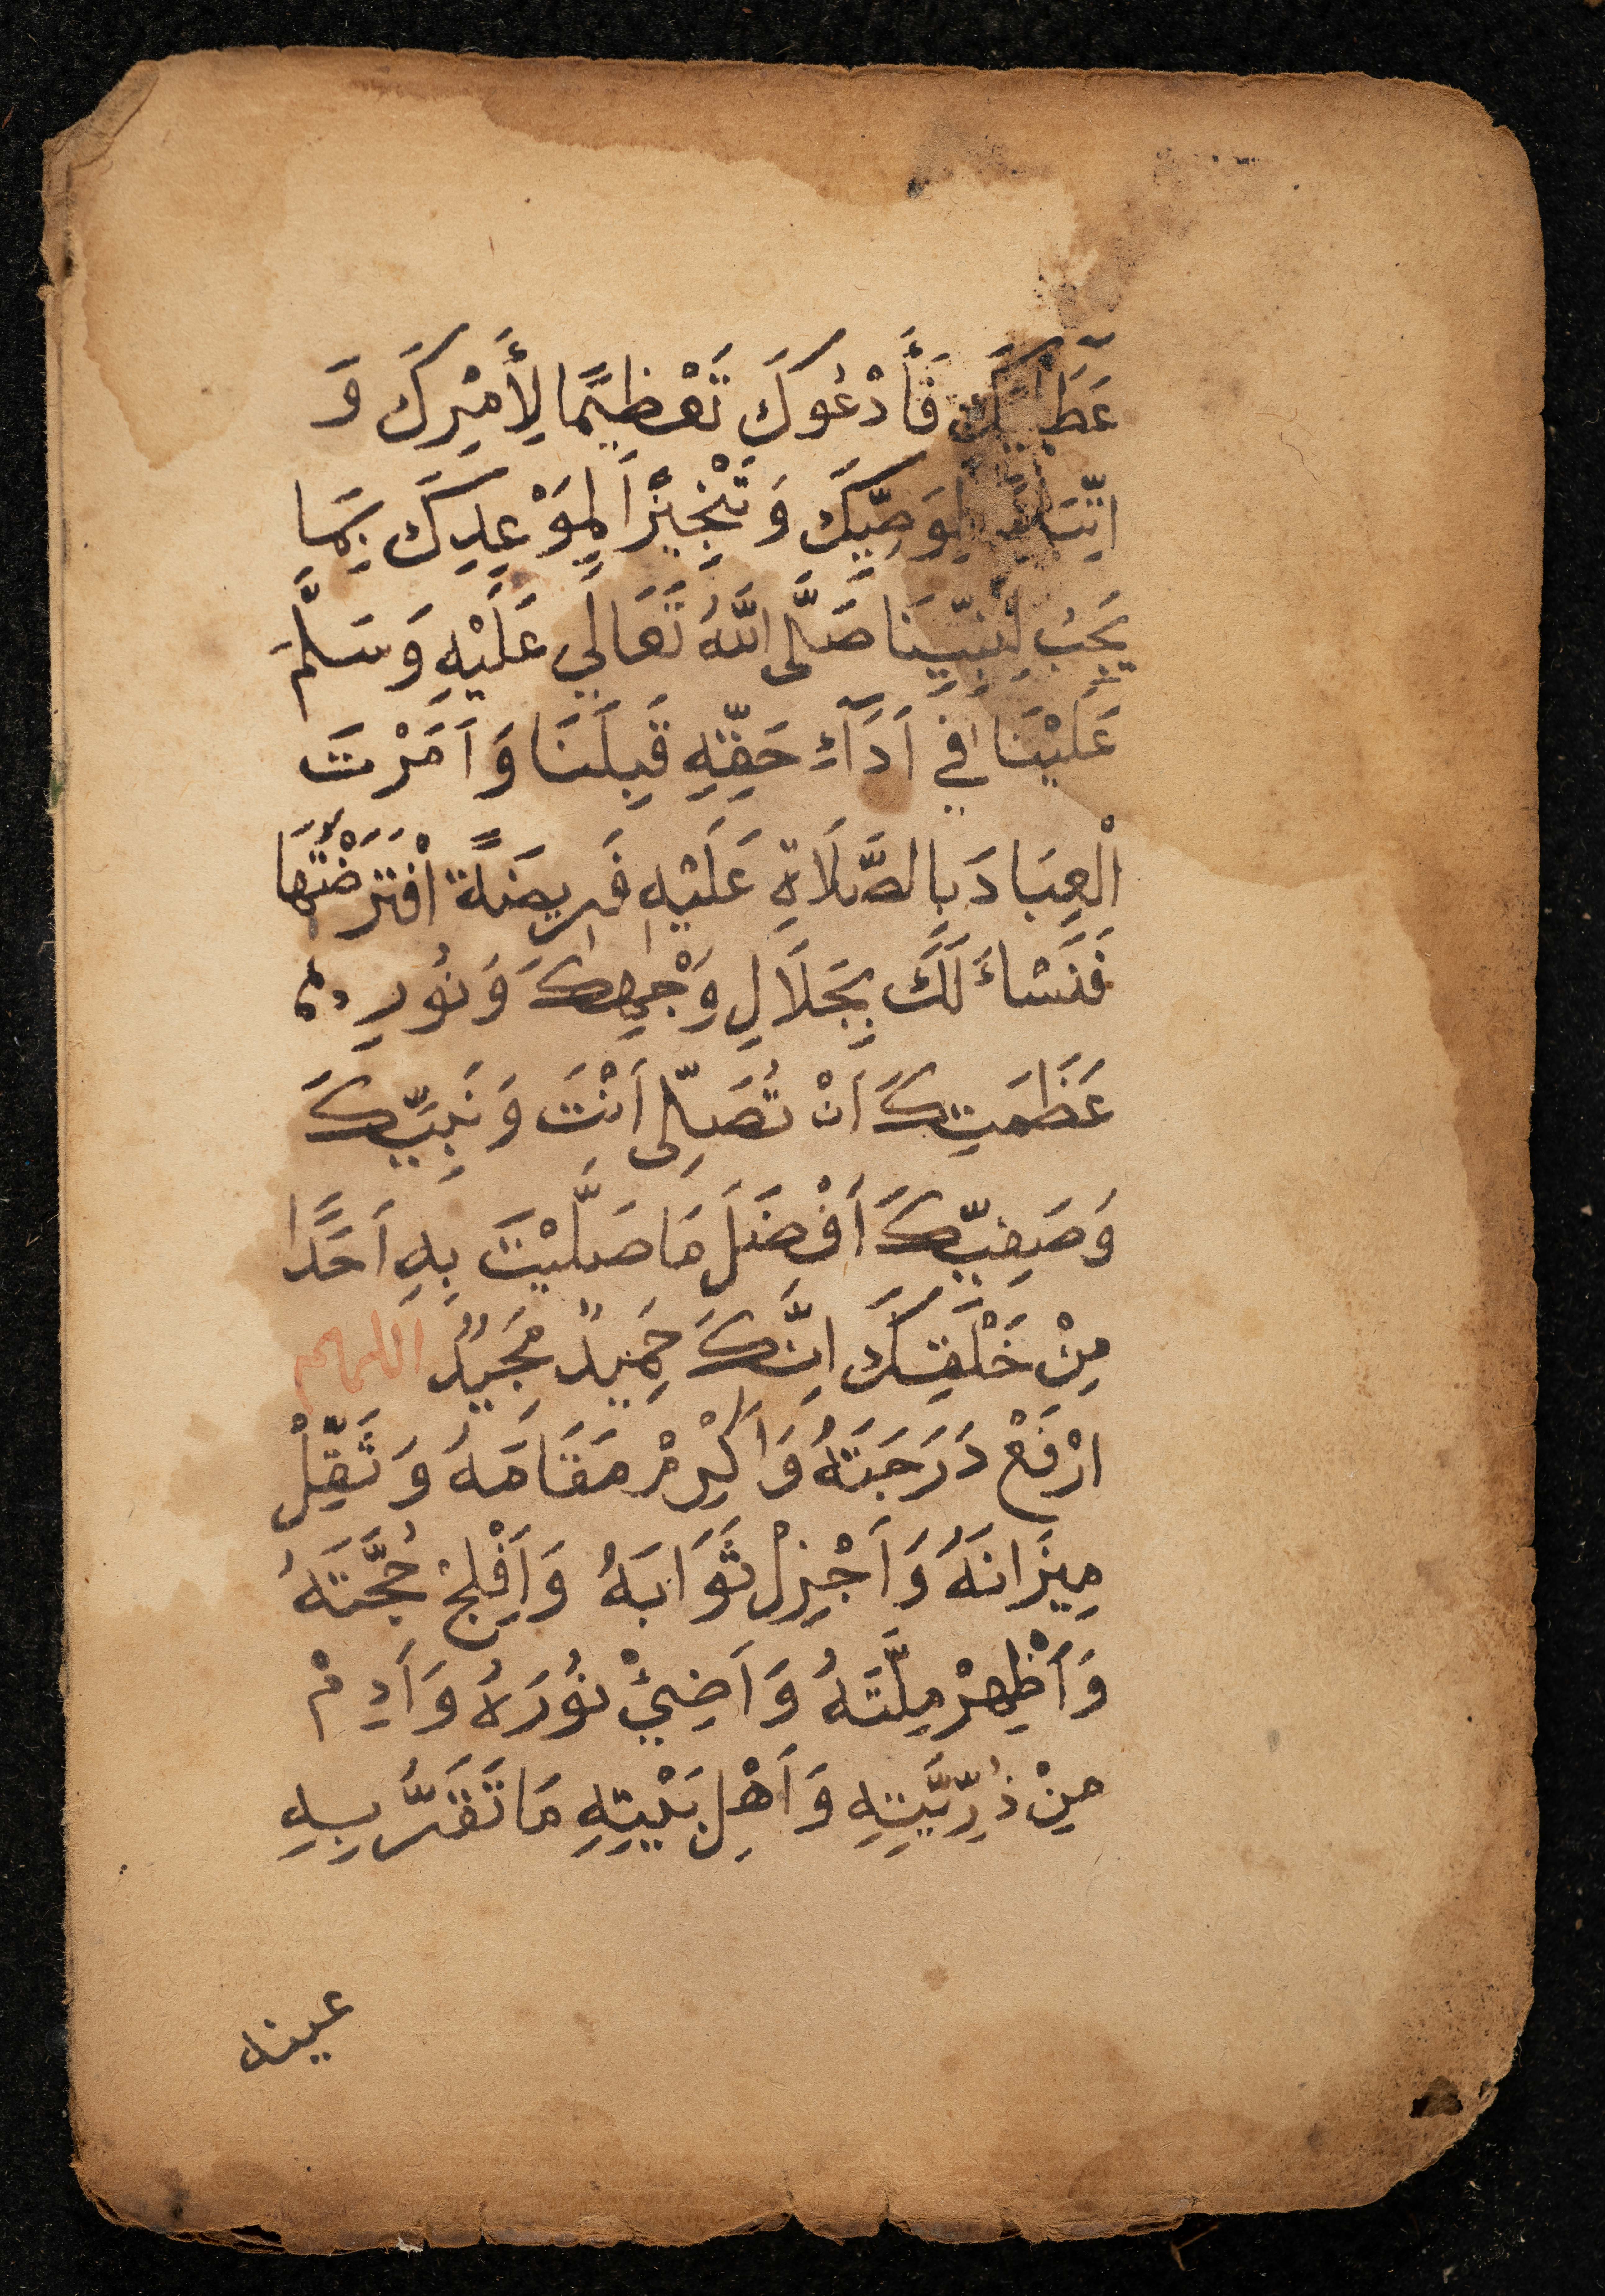 عَطَآئِكَ فَأَدْعُوكَ تَعْظِيمًا لِأَمْرِكَ وَ
اتِّبَاعًا لِوَصِيَّتِكَ وَتَنْجِيْزًا لِمَوْعِدِكَ بِمَا
يَجِبُ لِنَبِيِّنَا صَلَّى اللَّهُ تَعَالَي عَلَيْهِ وَسَلَّمَ
عَلَيْنَا فِي اَدَآءِ حَقِّهِ قِبَلَنَا وَاَمَرْتَ
الْعِبَادَ بِالصَّلَاةِ عَلَيْهِ فَرِيضَةً افْتَرَضْتَهَا
فَنَسْأَلُكَ بِجَلَالِ وَجْهِكَ وَنُورِ
عَظَمَتِكَ اَنْ تُصَلِّى اَنْتَ وَنَبِيِّكَ
وَصَفِيِّكَ اَفْضَلَ مَا صَلَّيْتَ بِهِ اَحَدًا
مِنْ خَلْقِكَ اِنَّكَ حَمِيدٌ مَجِيدٌ اَللهم
ارْفَعْ دَرَجَتَهُ وَاَكْرِمْ مَقَامَهُ وَثَقِّلْ
مِيزَانَهُ وَاَجْزِلْ ثَوَابَهُ وَاَفْلِجْ حُجَّتَهُ
وَاَظْهِرْ مِلَّتَهُ وَاَضِئْ نُورَهُ وَاَدِمْ
مِنْ ذُرِّيَّتِهِ وَاَهْلِ بَيْتِهِ مَا تَقَرُّ بِهِ
عينه